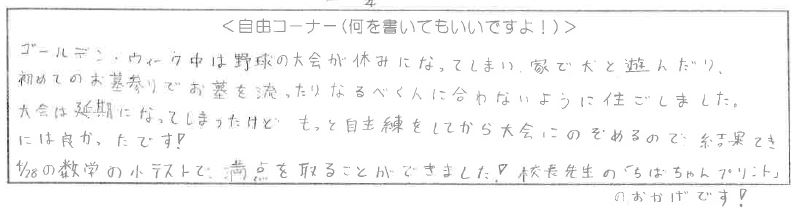 4
<自由コーナー(何を書いてもいいですよ!)>
ゴールデン・ウィーク中は野球の大会が休みになってしまい、家で犬と遊んだり、
初めてのお墓参りでお墓を流ったりなるべく人に合わないように住ごしました。
大会は延期になってしまったけど もっと自主練をしてから大会にのぞめるので、結果てき
には良かったです!
4/28の数学の小テストで、満点を取ることができました! 校長先生の「ちばちゃんプリント」
のおかげです!